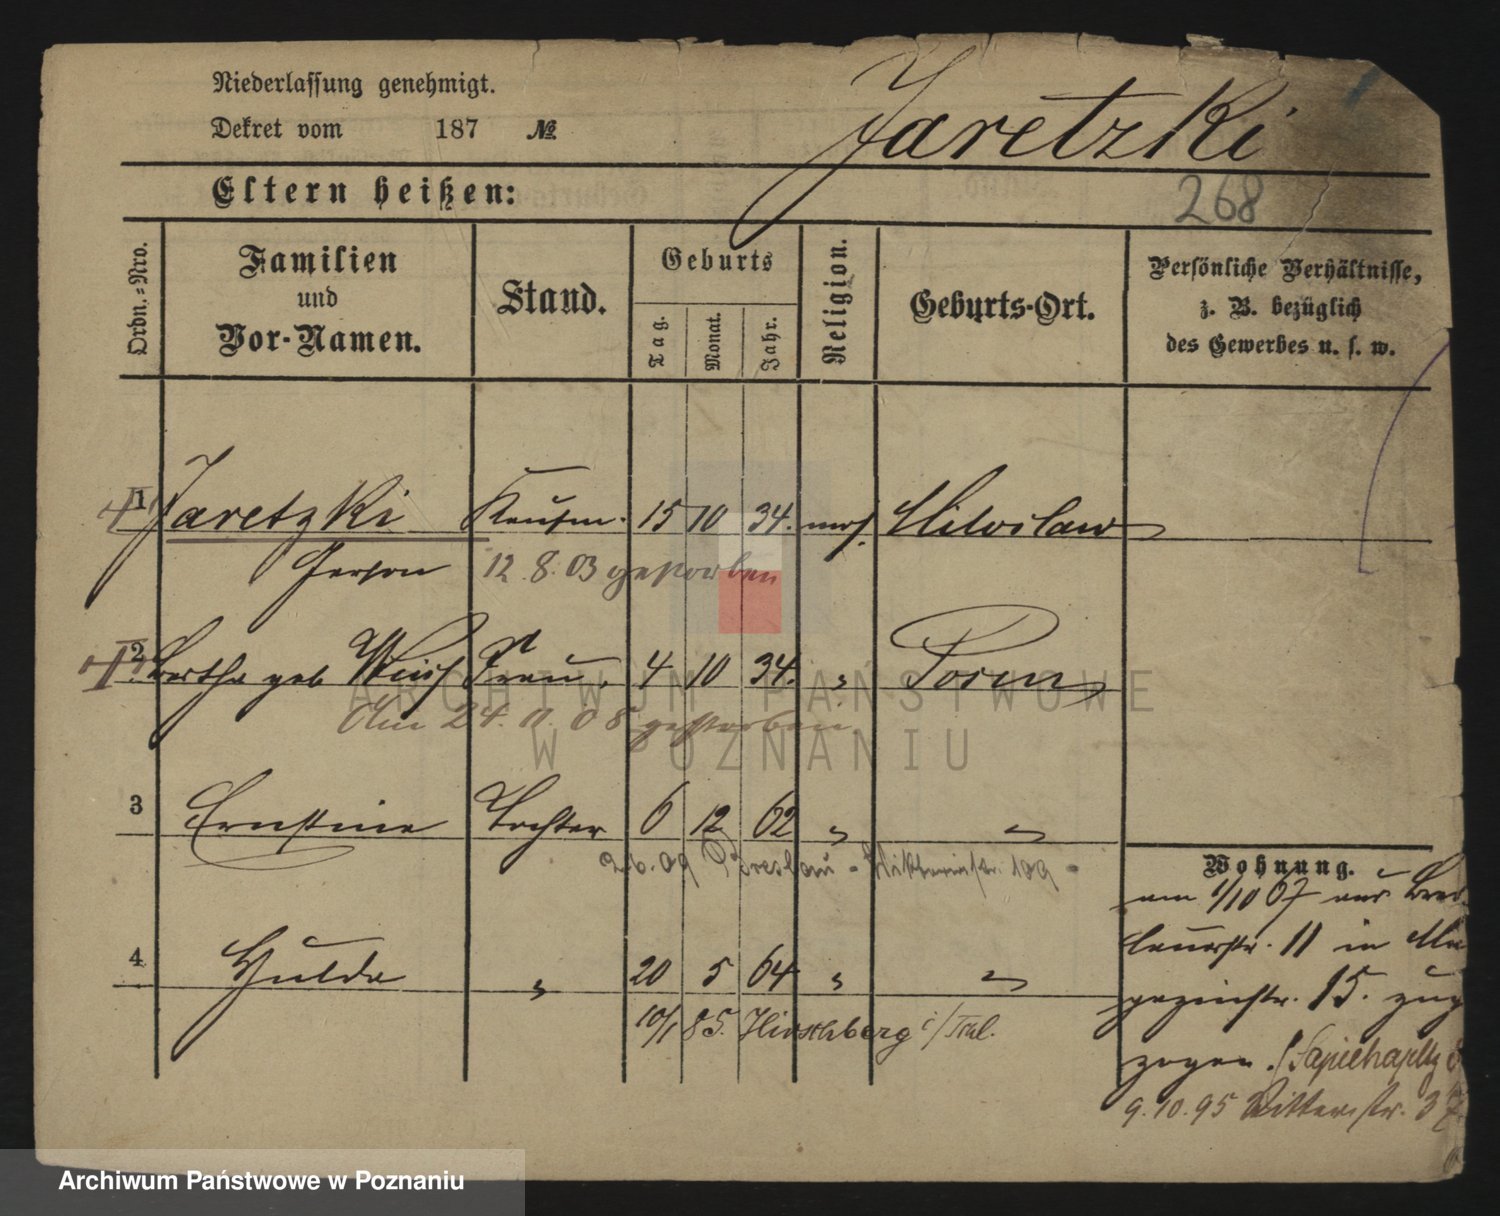 Niederlassung genehmigt.
Jaretzki
Dekret vom 187 №
Eltern heißen:
268
Ordn.-Nro.
Familien
und
Vor-Namen.
Stand.
Geburts
Tag.
Monat.
Jahr.
Religion.
Geburts-Ort.
Persönliche Verhältnisse,
z. B. bezüglich
des Gewerbes u. s. w.
1 Jaretzki Kaufm. 15 10 34. mos. Miloslaw
Gerson 12.8.03 gestorben
2 Bertha geb Frau. 4 10 34. " Posen
Am 24. 11. 08 gestorben
ARCHIWUM PAŃSTWOWE
W POZNANIU
3 Ernstine Tochter 6 12 62 " "
2.6.09 Breslau - Viktoriastr. 109 -
Wohnung.
am 1/10 67 aus Bres-
lauerstr. 11 in Ma
4 Hulda " 20 5 64 " "
gazinstr. 15. zug
10/1 85. Hirschberg i/Schl.
zogen. Sapiehapltz
9.10.95 Ritterstr. 37
Archiwum Państwowe w Poznaniu